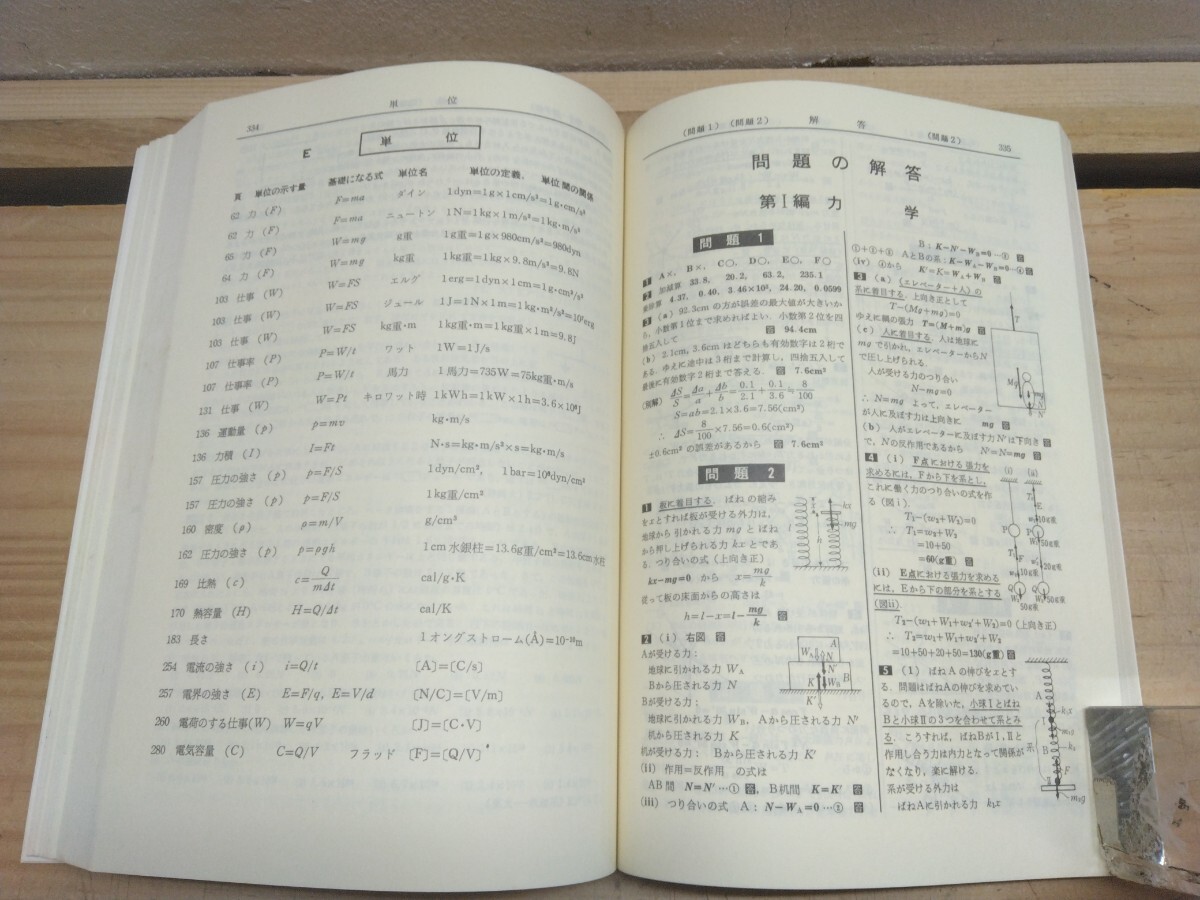 334
単 位
E 単 位
頁 単位の示す量 基礎になる式 単位名 単位の定義, 単位間の関係
62 力 (F) F=ma ダイン 1dyn=1g×1cm/s²=1g・cm/s²
62 力 (F) F=ma ニュートン 1N=1kg×1m/s²=1kg・m/s²
65 力 (F) W=mg g重 1g重=1g×980cm/s²=980dyn
64 力 (F) W=mg kg重 1kg重=1kg×9.8m/s²=9.8N
103 仕事 (W) W=FS エルグ 1erg=1dyn×1cm=1g・cm²/s²
103 仕事 (W) W=FS ジュール 1J=1N×1m=1kg・m²/s²=10⁷erg
103 仕事 (W) W=FS kg重・m 1kg重・m=1kg重×1m=9.8J
107 仕事率 (P) P=W/t ワット 1W=1J/s
107 仕事率 (P) P=W/t 馬力 1馬力=735W=75kg重・m/s
131 仕事 (W) W=Pt キロワット時 1kWh=1kW×1h=3.6×10⁶J
136 運動量 (p) p=mv kg・m/s
136 力積 (I) I=Ft N・s=kg・m/s²×s=kg・m/s
157 圧力の強さ (p) p=F/S 1dyn/cm², 1bar=10⁶dyn/cm²
157 圧力の強さ (p) p=F/S 1kg重/cm²
160 密度 (ρ) ρ=m/V g/cm³
162 圧力の強さ (p) p=ρgh 1cm水銀柱=13.6g重/cm²=13.6cm水柱
169 比熱 (c) c=Q/mΔt cal/g・K
170 熱容量 (H) H=Q/Δt cal/K
183 長さ 1オングストローム(Å)=10⁻¹⁰m
254 電流の強さ (i) i=Q/t 〔A〕=〔C/s〕
257 電界の強さ (E) E=F/q, E=V/d 〔N/C〕=〔V/m〕
260 電荷のする仕事(W) W=qV 〔J〕=〔C・V〕
280 電気容量 (C) C=Q/V フラッド 〔F〕=〔Q/V〕
(問題1) (問題2) 解 答 (問題2) 335
問題の解答
第Ⅰ編 力 学
問題 1
1 A×, B×, C○, D○, E○, F○
2 加減算 33.8, 20.2, 63.2, 235.1
乗除算 4.37, 0.40, 3.46×10³, 24.20, 0.0599
3 (a) 92.3cmの方が誤差の最大値が大きいか
ら, 小数第1位まで求めればよい. 小数第2位を四
捨五入して 答 94.4cm
(b) 2.1cm, 3.6cmはどちらも有効数字は2桁で
ある. ゆえに途中は3桁まで計算し, 四捨五入して
最後に有効数字2桁まで答える. 答 7.6cm²
(別解) ΔS/S=Δa/a+Δb/b=0.1/2.1+0.1/3.6≒8/100
S=ab=2.1×3.6=7.56(cm²)
∴ ΔS=8/100×7.56=0.6(cm²)
±0.6cm²の誤差があるから 答 7.6cm²
問題 2
1 板に着目する. ばねの縮み
をxとすれば板が受ける外力は,
地球から引かれる力mgとばね
から押し上げられる力kxとであ
る. つり合いの式 (上向き正)
kx-mg=0 から x=mg/k
従って板の床面からの高さは
h=l-x=l-mg/k 答
2 (i) 右図 答
Aが受ける力:
地球に引かれる力 W_A
Bから圧される力 N
Bが受ける力:
地球に引かれる力 W_B, Aから圧される力 N′
机から圧される力 K
机が受ける力: Bから圧される力 K′
(ii) 作用=反作用 の式は
AB間 N=N′…① 答, B机間 K=K′ 答
(iii) つり合いの式 A: N-W_A=0…② 答
B: K-N′-W_B=0…③ 答
①+②+③ AとBの系: K-W_A-W_B=0…④ 答
(iv) ④から K′=K=W_A+W_B 答
3 (a) 《エレベーター+人》の
系に着目する. 上向き正として
T-(Mg+mg)=0
ゆえに綱の張力 T=(M+m)g 答
(c) 人に着目する. 人は地球に
mgで引かれ, エレベーターからN
で圧し上げられる.
人が受ける力のつり合い
N-mg=0
∴ N=mg よって, エレベーター
が人に及ぼす力は上向きに mg 答
(b) 人がエレベーターに及ぼす力N′は下向き
で, Nの反作用であるから N′=N=mg 答
4 (i) F点における張力を
求めるには, Fから下を系とし,
これに働く力のつり合いの式を作
る (図i).
T₁-(w₂+W₂)=0
∴ T₁=w₂+W₂
=10+50
=60(g重) 答
(ii) E点における張力を求める
には, Eから下の部分を系とする
(図ii).
T₂-(w₁+W₁+w₂′+W₂)=0 (上向き正)
∴ T₂=w₁+W₁+w₂′+W₂
=10+50+20+50=130(g重) 答
5 (1) ばねAの伸びをxとす
る. 問題はばねAの伸びを求めてい
るので, Aを除いた, 小球Ⅰとばね
Bと小球Ⅱの3つを合わせて系とみ
る. こうすれば, ばねBがⅠ, Ⅱと
作用し合う力は内力となって関係が
なくなり, 楽に解ける.
系が受ける外力は
ばねAに引かれる力 k₁x